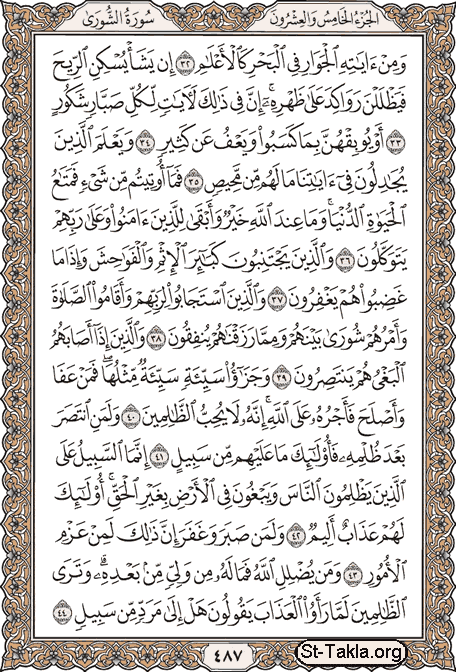 الجُزْءُ الخَامِسُ وَالعِشْرُونَ
سُورَةُ الشُّورَىٰ
وَمِنْ ءَايَـٰتِهِ الْجَوَارِ فِى الْبَحْرِ كَالْأَعْلَـٰمِ ٣٢ إِن يَشَأْ يُسْكِنِ الرِّيحَ
فَيَظْلَلْنَ رَوَاكِدَ عَلَىٰ ظَهْرِهِۦٓ ۚ إِنَّ فِى ذَٰلِكَ لَأَيَـٰتٍ لِّكُلِّ صَبَّارٍ شَكُورٍ
٣٣ أَوْ يُوبِقْهُنَّ بِمَا كَسَبُوا۟ وَيَعْفُ عَن كَثِيرٍ ٣٤ وَيَعْلَمَ الَّذِينَ
يُجَـٰدِلُونَ فِىٓ ءَايَـٰتِنَا مَا لَهُم مِّن مَّحِيصٍ ٣٥ فَمَآ أُوتِيتُم مِّن شَىْءٍ فَمَتَـٰعُ
الْحَيَوٰةِ الدُّنْيَا ۖ وَمَا عِندَ اللَّهِ خَيْرٌ وَأَبْقَىٰ لِلَّذِينَ ءَامَنُوا۟ وَعَلَىٰ رَبِّهِمْ
يَتَوَكَّلُونَ ٣٦ وَالَّذِينَ يَجْتَنِبُونَ كَبَـٰٓئِرَ الْإِثْمِ وَالْفَوَٰحِشَ وَإِذَا مَا
غَضِبُوا۟ هُمْ يَغْفِرُونَ ٣٧ وَالَّذِينَ اسْتَجَابُوا۟ لِرَبِّهِمْ وَأَقَامُوا۟ الصَّلَوٰةَ
وَأَمْرُهُمْ شُورَىٰ بَيْنَهُمْ وَمِمَّا رَزَقْنَـٰهُمْ يُنفِقُونَ ٣٨ وَالَّذِينَ إِذَآ أَصَابَهُمُ
الْبَغْىُ هُمْ يَنتَصِرُونَ ٣٩ وَجَزَٰٓؤُا۟ سَيِّئَةٍ سَيِّئَةٌ مِّثْلُهَا ۖ فَمَنْ عَفَا
وَأَصْلَحَ فَأَجْرُهُۥ عَلَى اللَّهِ ۚ إِنَّهُۥ لَا يُحِبُّ الظَّـٰلِمِينَ ٤٠ وَلَمَنِ انتَصَرَ
بَعْدَ ظُلْمِهِۦ فَأُو۟لَـٰٓئِكَ مَا عَلَيْهِم مِّن سَبِيلٍ ٤١ إِنَّمَا السَّبِيلُ عَلَى
الَّذِينَ يَظْلِمُونَ النَّاسَ وَيَبْغُونَ فِى الْأَرْضِ بِغَيْرِ الْحَقِّ ۚ أُو۟لَـٰٓئِكَ
لَهُمْ عَذَابٌ أَلِيمٌ ٤٢ وَلَمَن صَبَرَ وَغَفَرَ إِنَّ ذَٰلِكَ لَمِنْ عَزْمِ
الْأُمُورِ ٤٣ وَمَن يُضْلِلِ اللَّهُ فَمَا لَهُۥ مِن وَلِىٍّ مِّنۢ بَعْدِهِۦ ۗ وَتَرَى
الظَّـٰلِمِينَ لَمَّا رَأَوُا۟ الْعَذَابَ يَقُولُونَ هَلْ إِلَىٰ مَرَدٍّ مِّن سَبِيلٍ ٤٤
٤٨٧
St-Takla.org